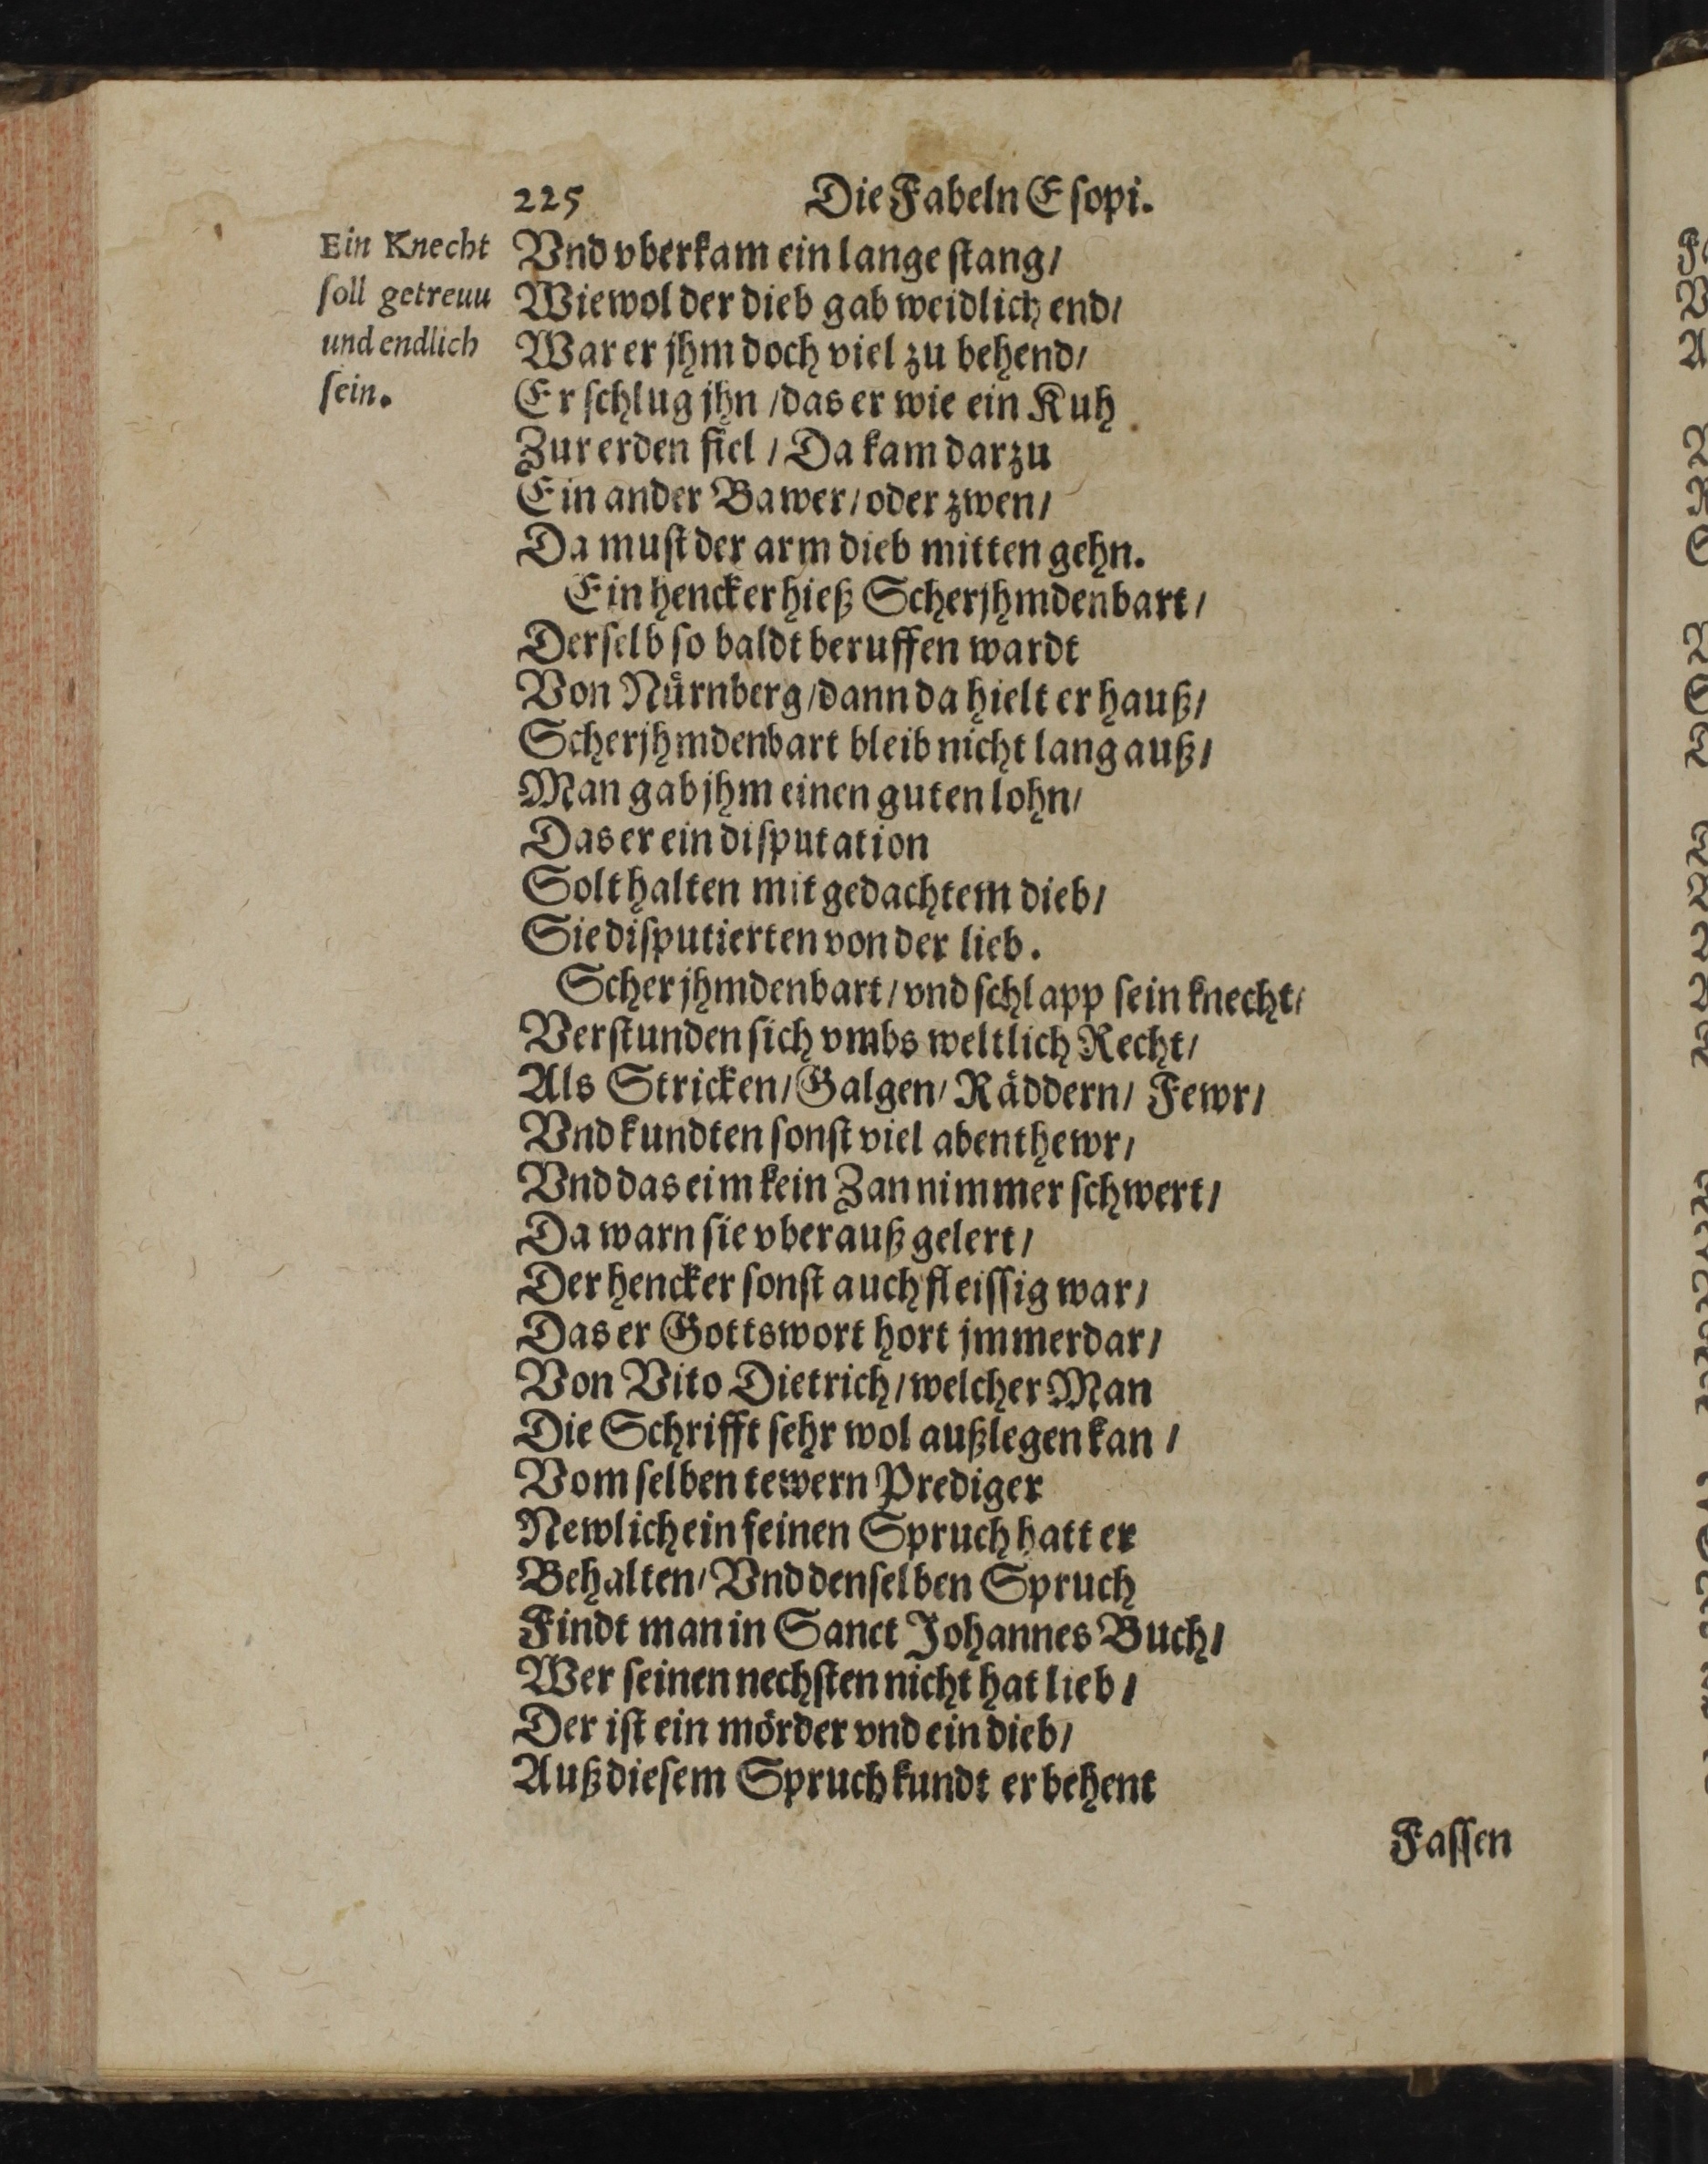 225 Die Fabeln Esopi.
Ein Knecht
soll getreuu
und endlich
sein.
Vnd vberkam ein lange stang/
Wiewol der dieb gab weidlich end/
War er jhm doch viel zu behend/
Er schlug jhn / das er wie ein Kuh
Zur erden fiel / Da kam darzu
Ein ander Bawer / oder zwen /
Da must der arm dieb mitten gehn.
Ein hencker hieß Scherjhmdenbart /
Derselb so baldt beruffen wardt
Von Nürnberg / dann da hielt er hauß /
Scherjhmdenbart bleib nicht lang auß /
Man gab jhm einen guten lohn /
Das er ein disputation
Solt halten mit gedachtem dieb /
Sie disputierten von der lieb.
Scherjhmdenbart / vnd schlapp sein knecht /
Verstunden sich vmbs weltlich Recht /
Als Stricken / Galgen / Räddern / Fewr /
Vnd kundten sonst viel abenthewr /
Vnd das eim kein Zan nimmer schwert /
Da warn sie vberauß gelert /
Der hencker sonst auch fleissig war /
Das er Gottswort hort jmmerdar /
Von Vito Dietrich / welcher Man
Die Schrifft sehr wol außlegen kan /
Vom selben tewern Prediger
Newlich ein feinen Spruch hatt er
Behalten / Vnd denselben Spruch
Findt man in Sanct Johannes Buch /
Wer seinen nechsten nicht hat lieb /
Der ist ein mörder vnd ein dieb /
Auß diesem Spruch kundt er behent
Fassen